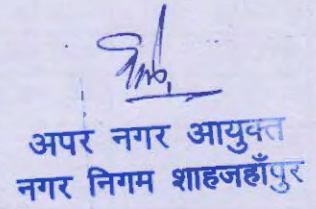 अपर नगर आयुक्त
नगर निगम शाहजहाँपुर